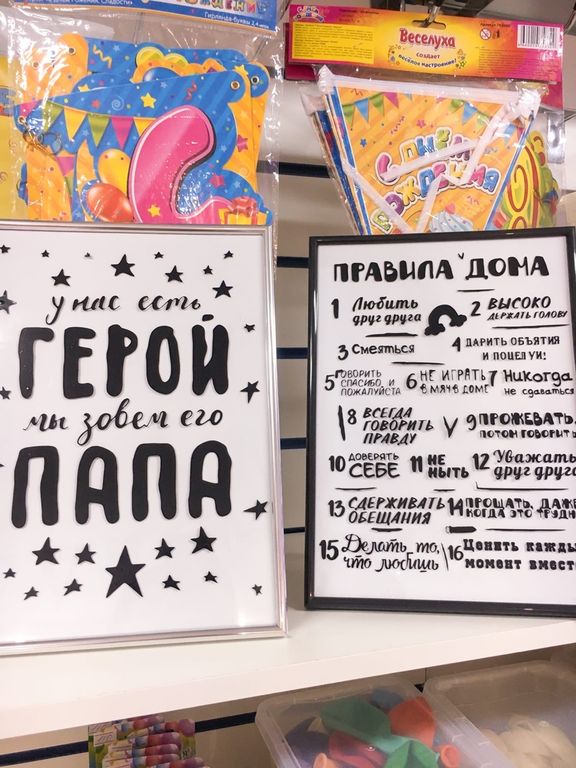 Гирлянда-буквы 2,4
Веселуха
создаёт
весёлое настроение!
С ДНЁМ
РОЖДЕНИЯ
у нас есть
ГЕРОЙ
мы зовем его
ПАПА
ПРАВИЛА ДОМА
1 Любить
друг друга
2 ВЫСОКО
ДЕРЖАТЬ ГОЛОВУ
3 Смеяться
4 ДАРИТЬ ОБЪЯТИЯ
И ПОЦЕЛУИ:
5 ГОВОРИТЬ
СПАСИБО, И
ПОЖАЛУЙСТА
6 НЕ ИГРАТЬ
В МЯЧ В ДОМЕ
7 Никогда
не сдаваться
8 ВСЕГДА
ГОВОРИТЬ
ПРАВДУ
9 ПРОЖЕВАТЬ,
ПОТОМ ГОВОРИТЬ
10 ДОВЕРЯТЬ
СЕБЕ
11 НЕ
НЫТЬ
12 Уважать
друг друга
13 СДЕРЖИВАТЬ
ОБЕЩАНИЯ
14 ПРОЩАТЬ, ДАЖЕ
КОГДА ЭТО ТРУДН
15 Делать то,
что любишь
16 Ценить кажды
момент вмест